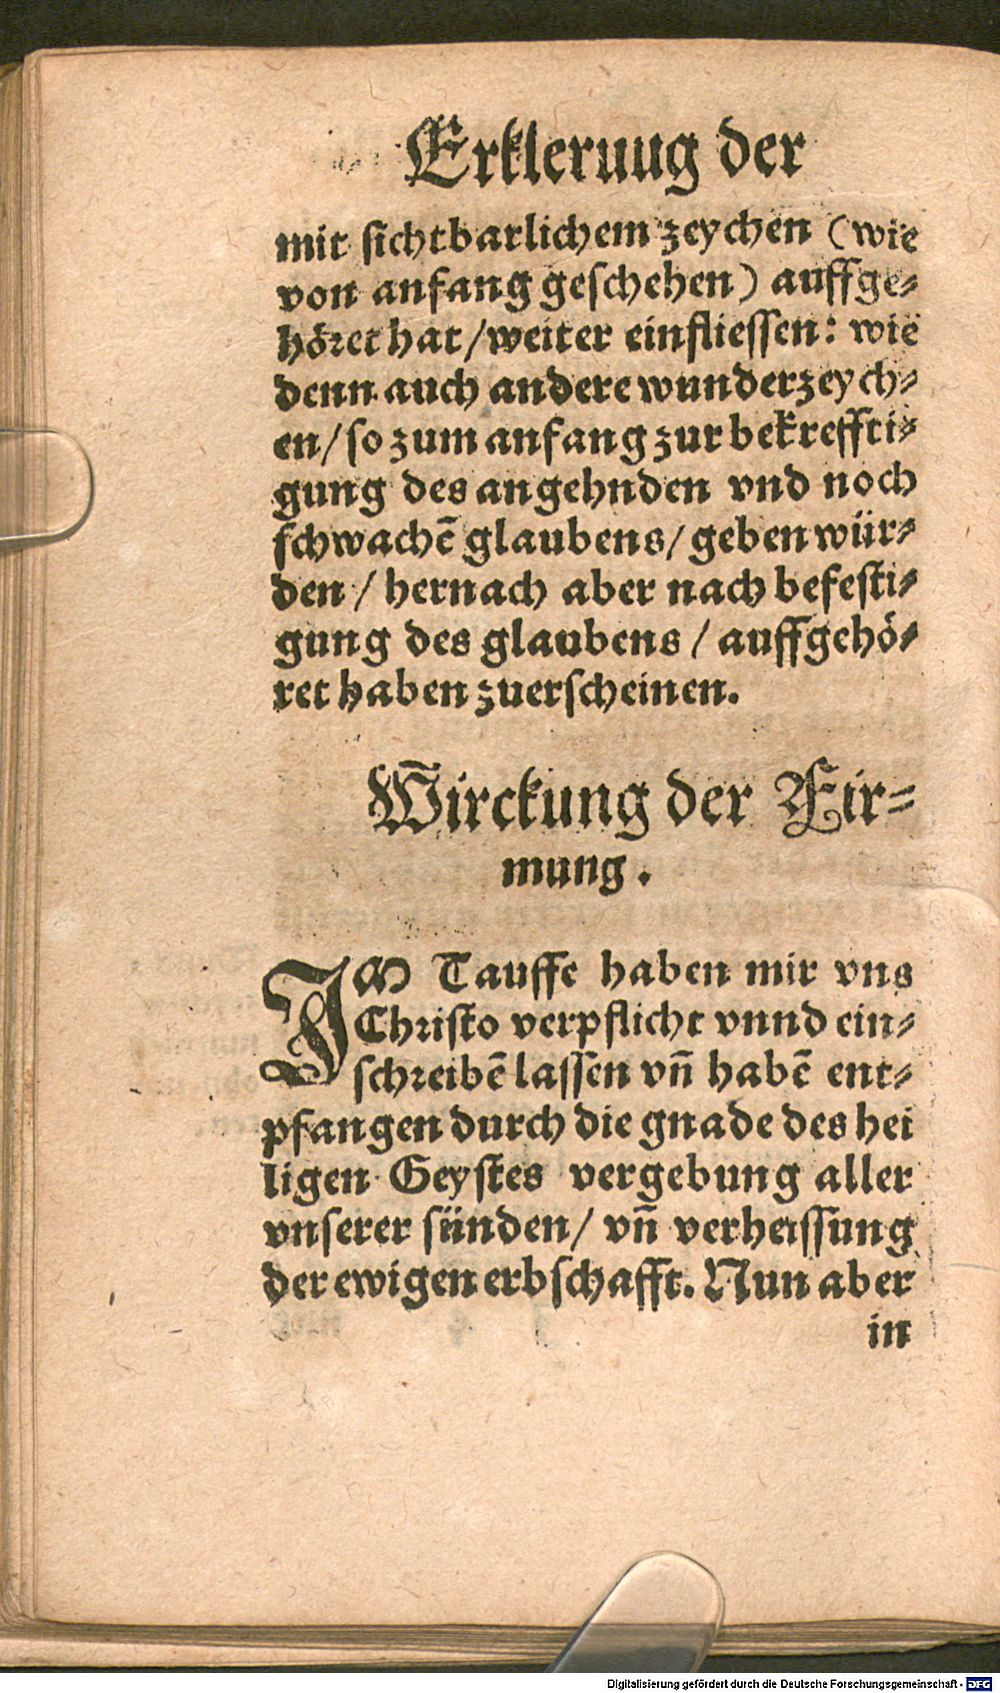 Erkleruug der
mit sichtbarlichem zeychen (wie
von anfang geschehen) auffge-
höret hat/weiter einfliessen: wie
denn auch andere wunderzeych-
en/so zum anfang zur bekreffti-
gung des angehnden vnd noch
schwachē glaubens/geben wür-
den/hernach aber nach befesti-
gung des glaubens/auffgehö-
ret haben zuerscheinen.
Wirckung der Fir-
mung.
IM Tauffe haben mir vns
Christo verpflicht vnnd ein-
schreibē lassen vñ habē ent-
pfangen durch die gnade des hei
ligen Geystes vergebung aller
vnserer sünden/vñ verheissung
der ewigen erbschafft. Nun aber
in
Digitalisierung gefördert durch die Deutsche Forschungsgemeinschaft - DFG